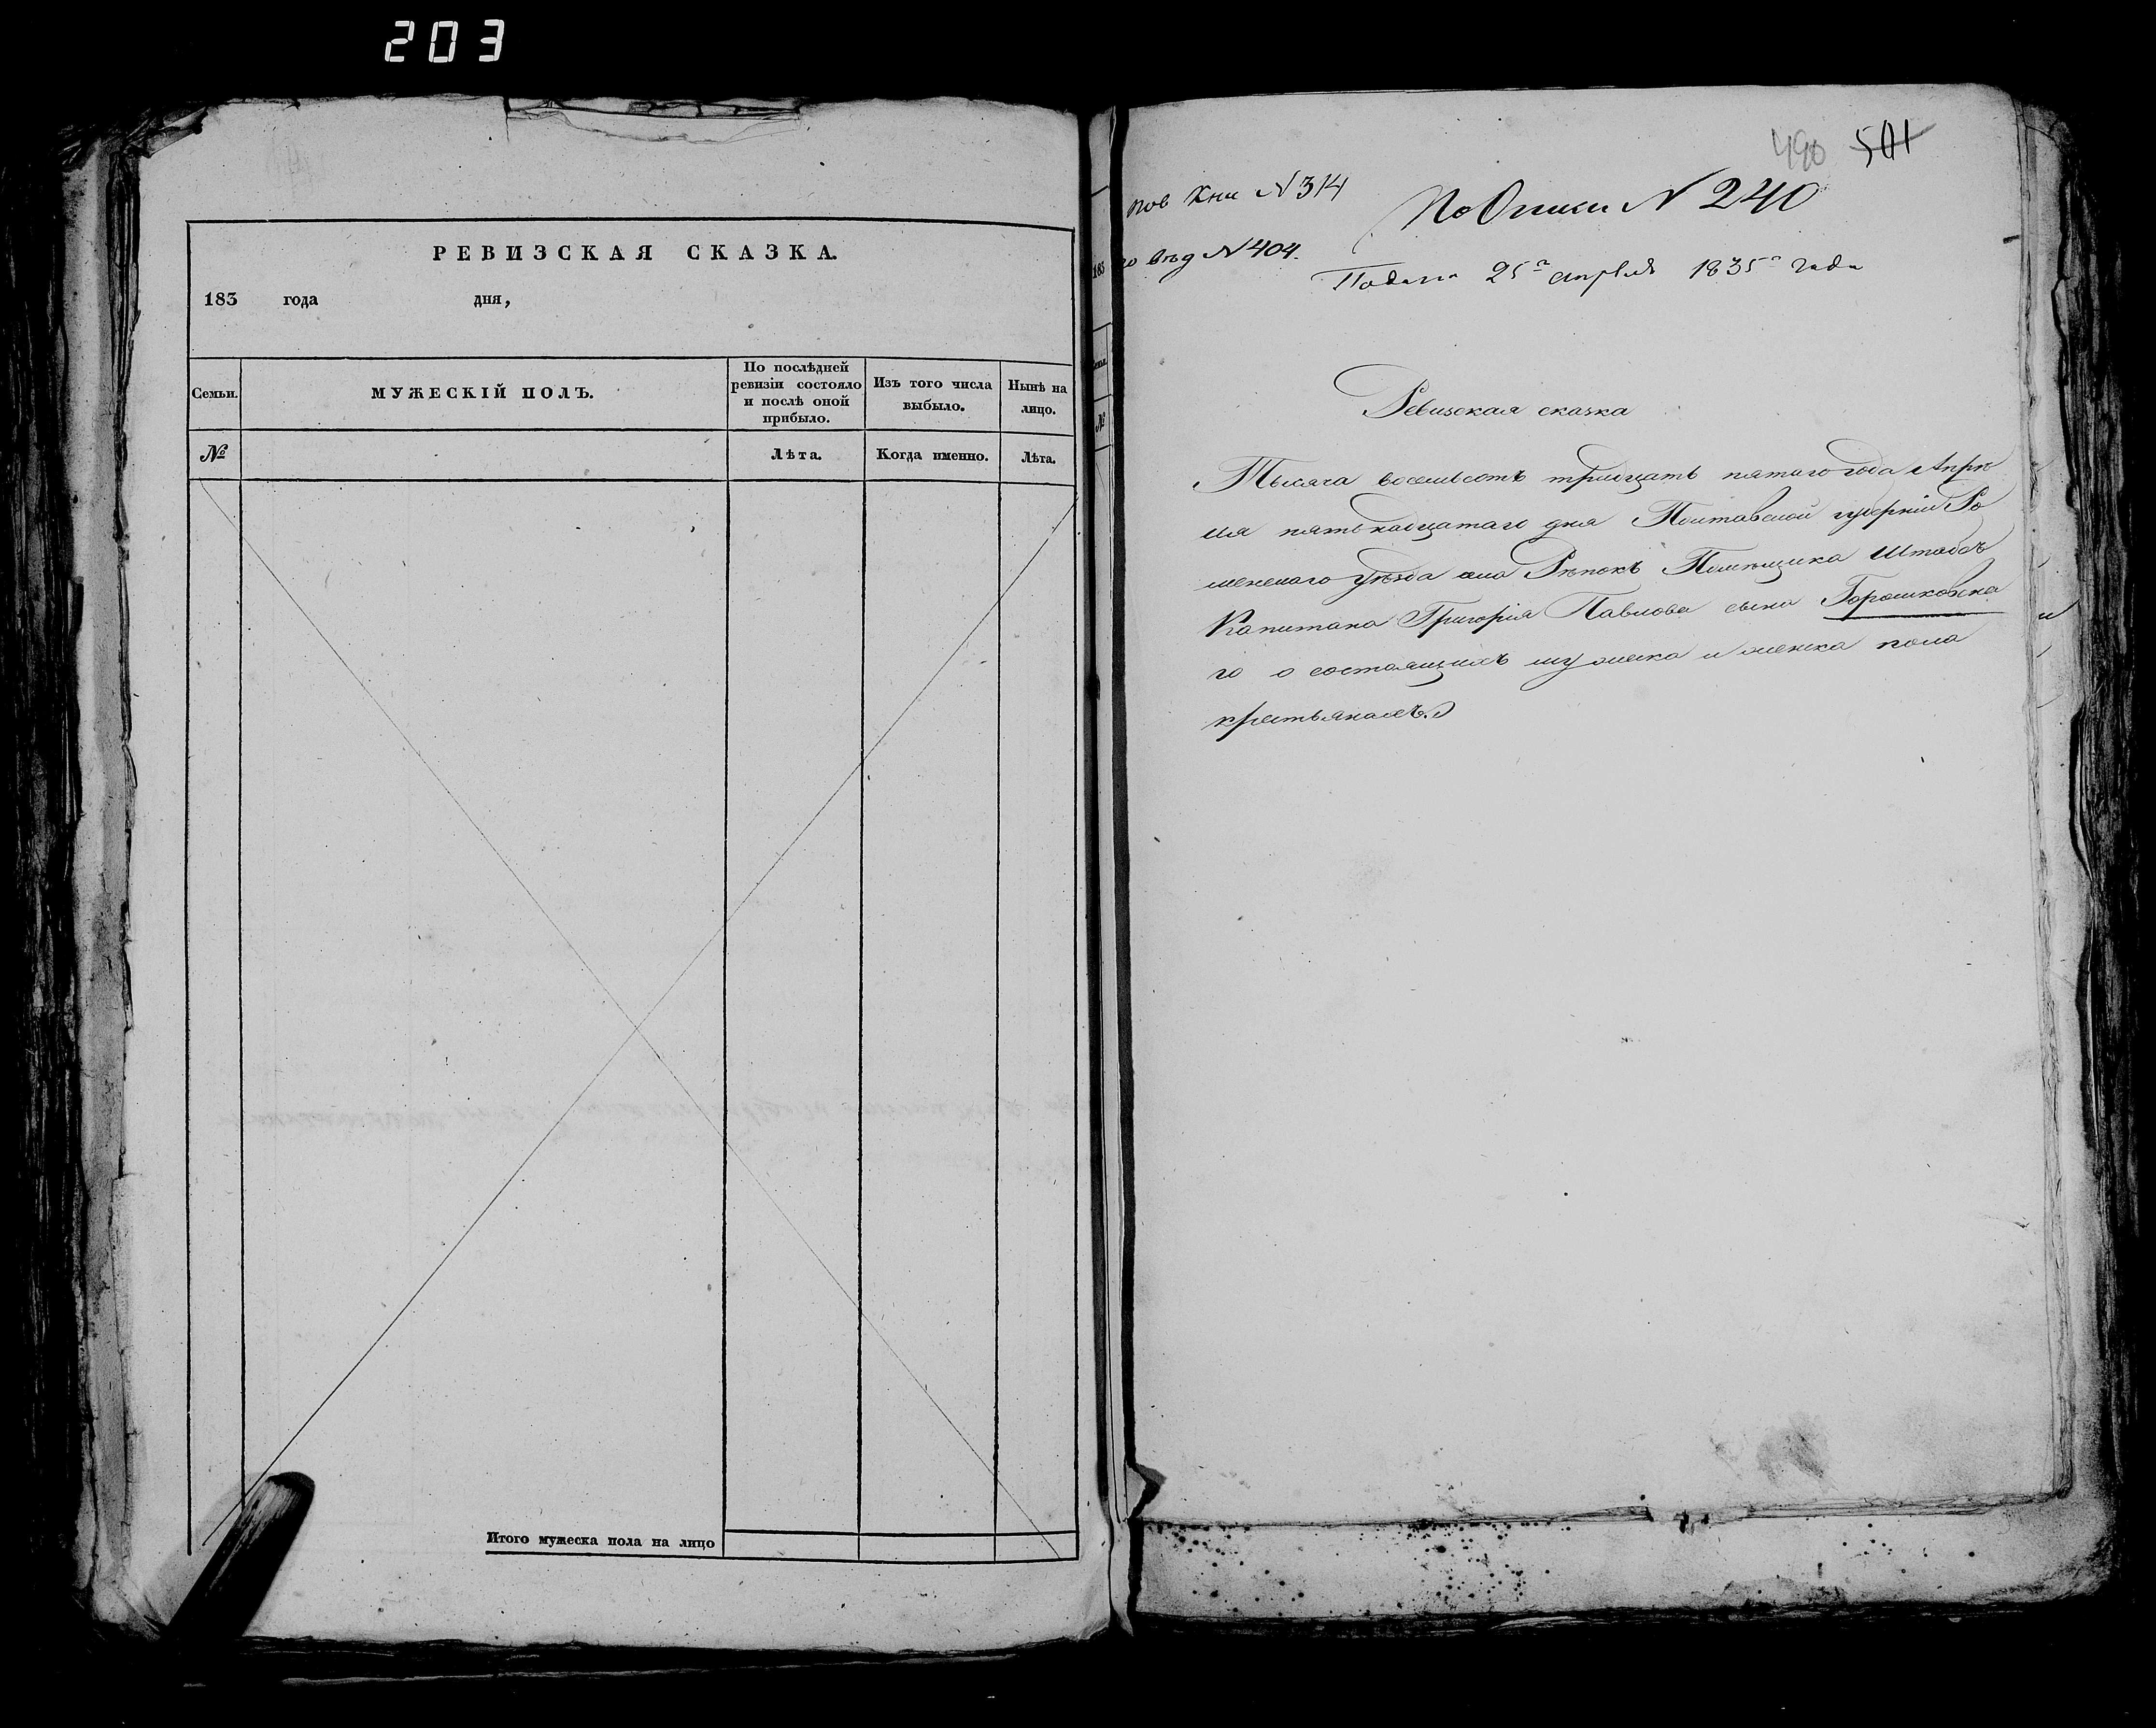 203
РЕВИЗСКАЯ СКАЗКА.
183 года дня,
Семьи.
МУЖЕСКІЙ ПОЛЪ.
По послѣдней
ревизіи состояло
и послѣ оной
прибыло.
Изъ того числа
выбыло.
Нынѣ на
лицо.
№
Лѣта.
Когда именно.
Лѣта.
Итого мужеска пола на лицо
490 501
пов Кни N 314
По Описи N 240
вѣд N 404.
Подана 25го апрѣля 1835го года
Ревизская сказка
Тысяча восемьсотъ тридцать пятаго года Апрѣ
ля пятьнадцатаго дня Полтавской губерніи Ро
менскаго уѣзда села Рѣпокъ Помѣщика Штабсъ
Капитана Григорія Павлова сына Горошковска
го о состоящихъ мужеска и женска пола
крестьянахъ.